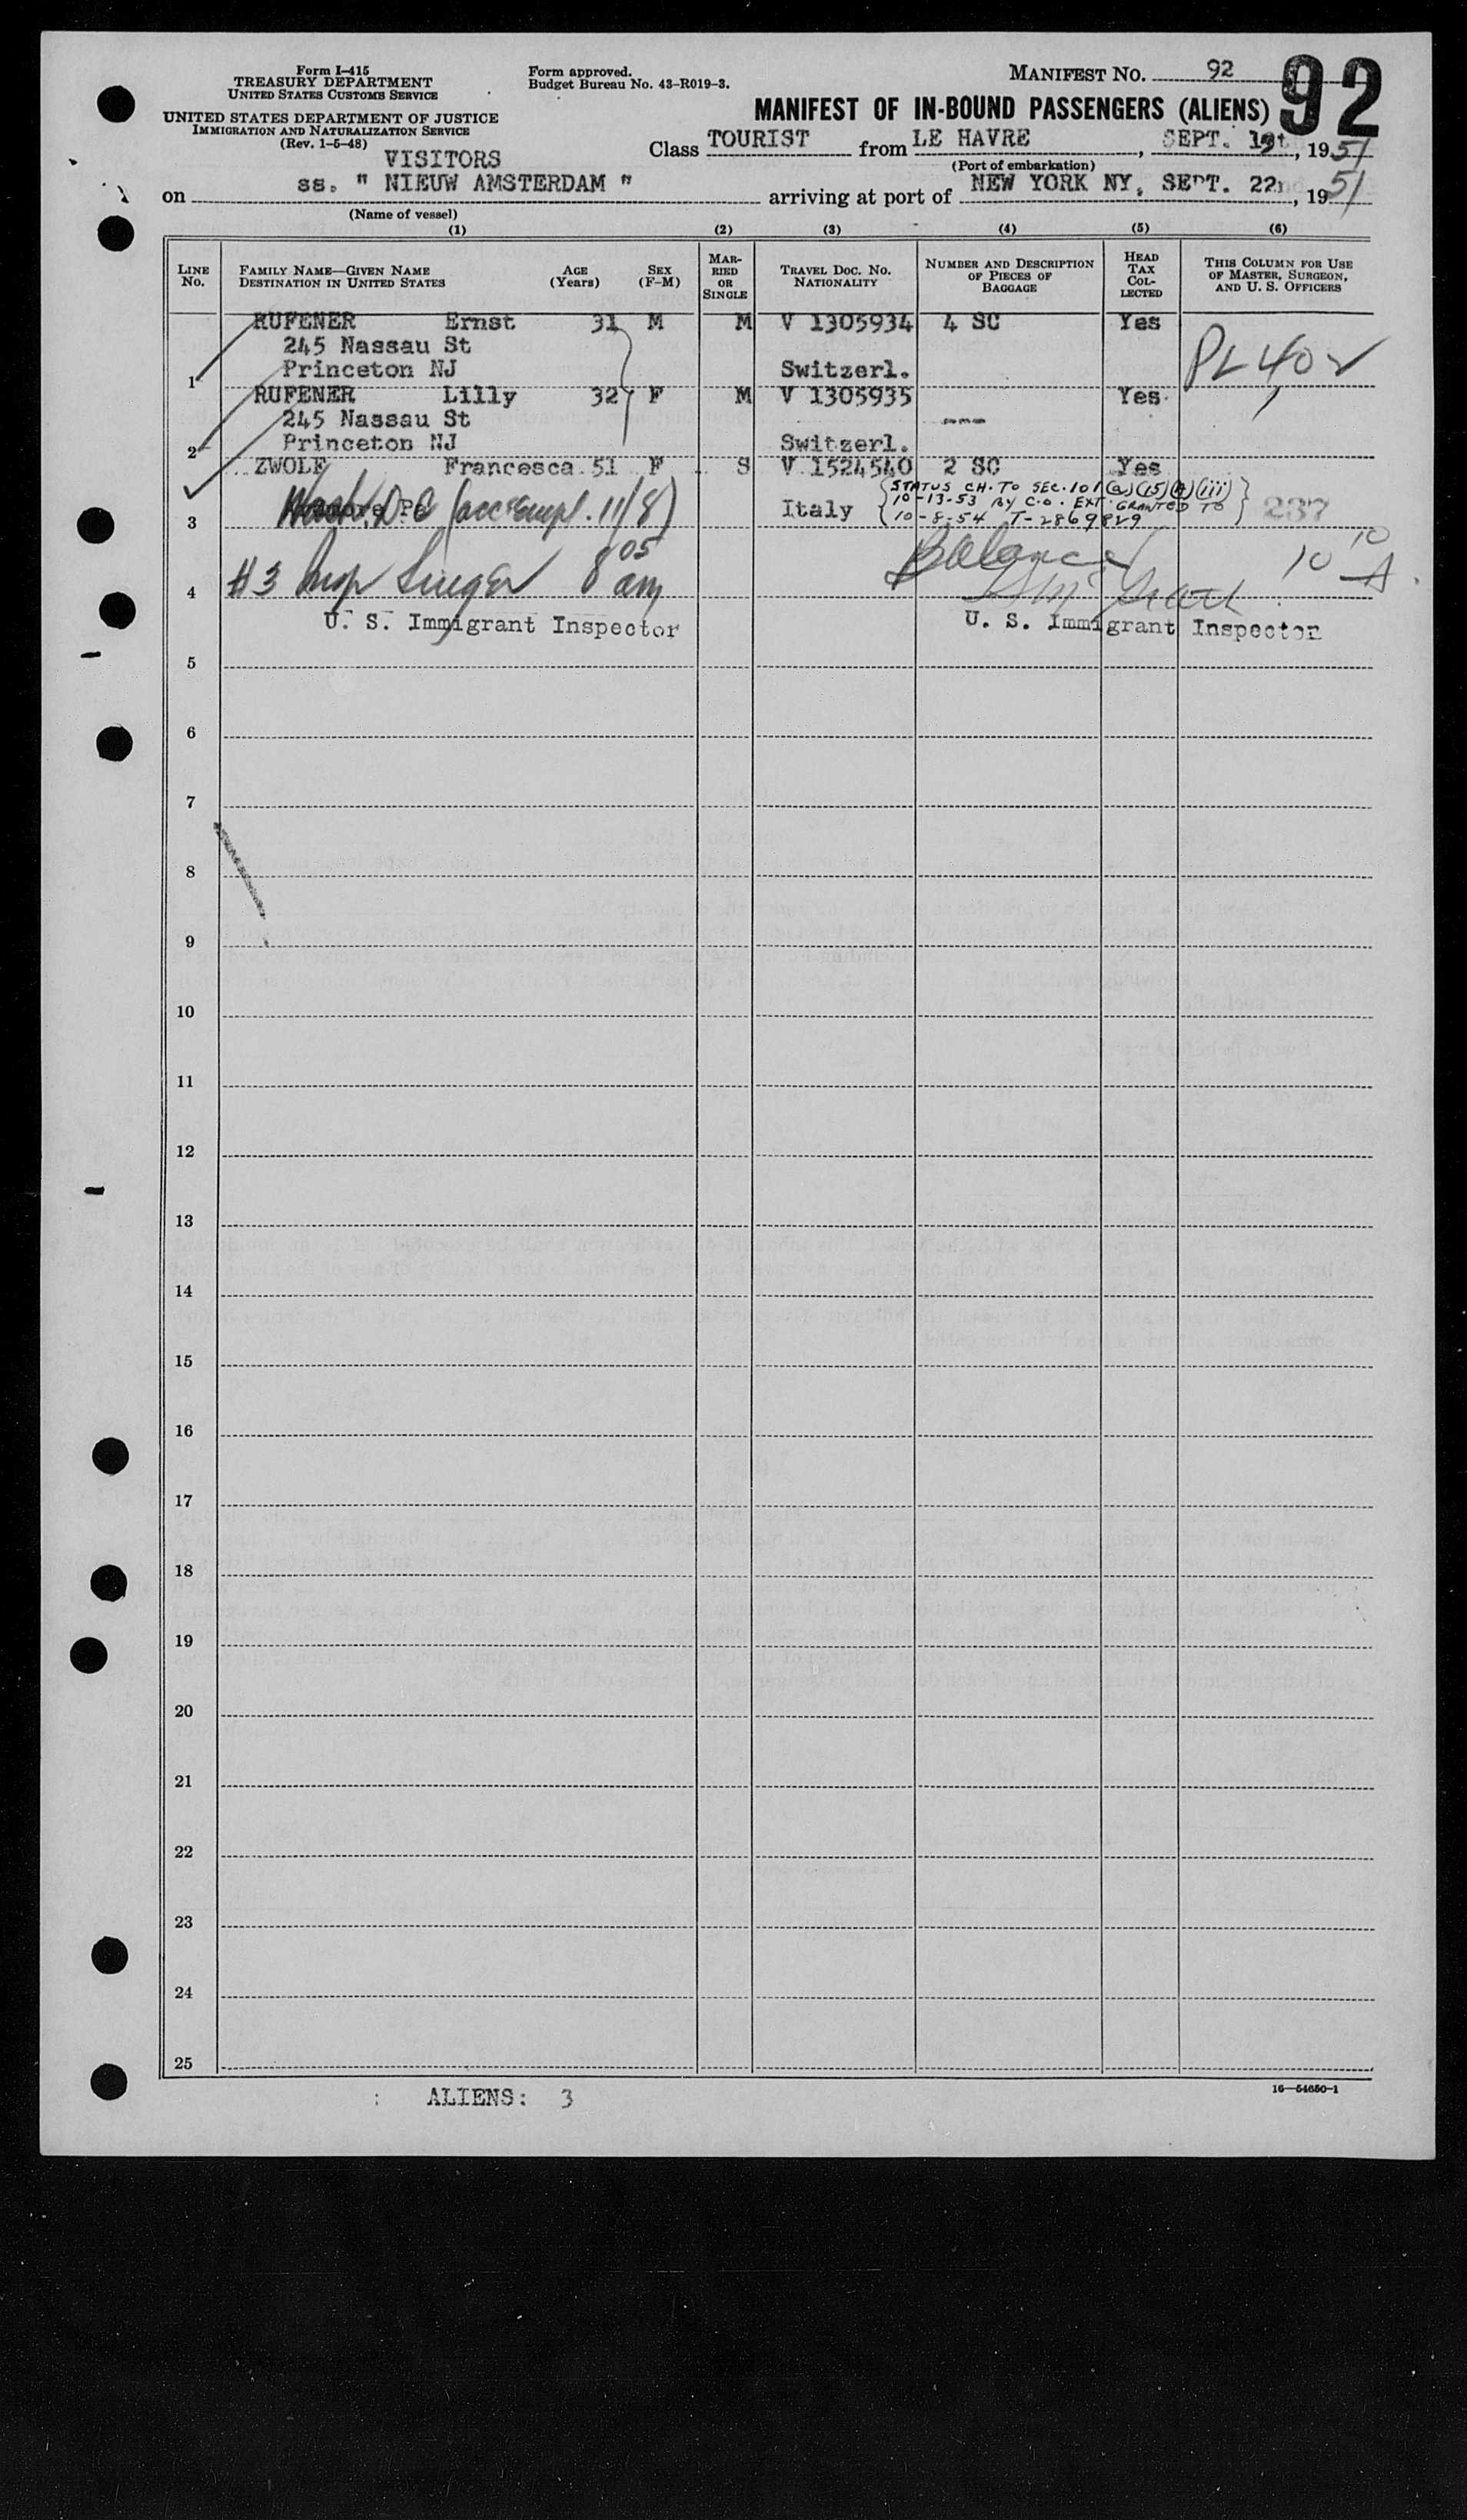 Form I-415
TREASURY DEPARTMENT
UNITED STATES CUSTOMS SERVICE
UNITED STATES DEPARTMENT OF JUSTICE
IMMIGRATION AND NATURALIZATION SERVICE
(Rev. 1-5-48)
Form approved.
Budget Bureau No. 43-R019-3.
MANIFEST NO. 92
92
MANIFEST OF IN-BOUND PASSENGERS (ALIENS)
VISITORS
Class TOURIST from LE HAVRE, SEPT. , 1951
(Port of embarkation)
on ss. " NIEUW AMSTERDAM " arriving at port of NEW YORK NY, SEPT. 22n, 1951
(Name of vessel)
(1) (2) (3) (4) (5) (6)
LINE NO.
FAMILY NAME—GIVEN NAME
DESTINATION IN UNITED STATES
AGE (Years)
SEX (F-M)
MARRIED OR SINGLE
TRAVEL DOC. NO.
NATIONALITY
NUMBER AND DESCRIPTION OF PIECES OF BAGGAGE
HEAD TAX COLLECTED
THIS COLUMN FOR USE OF MASTER, SURGEON, AND U. S. OFFICERS
RUFENER Ernst 31 M M V 1305934 4 SC Yes
245 Nassau St
1 Princeton NJ Switzerl. PL 40
RUFENER Lilly 32 F M V 1305935 Yes
245 Nassau St ---
2 Princeton NJ Switzerl.
ZWOLF Francesca 51 F S V 1524540 2 SC Yes
STATUS CH. TO SEC. 101(a)(15)(H)(iii)
3 Wash. DC (acc Empl. 11/8) Italy 10-13-53 BY C.O. EXT. GRANTED TO 237
10-8-54 T-2869829
4 #3 Insp Singer 8 05 am Balance 10 10 A.
U. S. Immigrant Inspector U. S. Immigrant Inspector
5
6
7
8
9
10
11
12
13
14
15
16
17
18
19
20
21
22
23
24
25
ALIENS: 3
16—54650-1